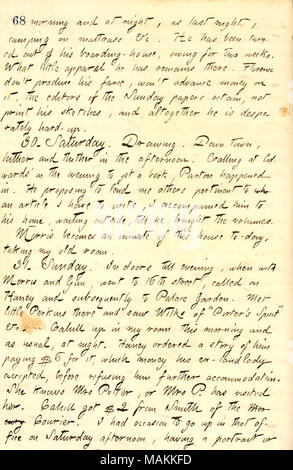 68 morning and at night, as last night,
camping on mattrass &c. He has been turn-
ed out of his boarding-house, owing for two weeks.
What little apparel he has remains there. Florence
don't produce his farce, won't advance money on
it, the editors of the Sunday papers retain, not
print his sketches, and altogether he is despe-
rately hard-up.
30. Saturday. Drawing. Down town,
hither and thither in the afternoon. Calling at Ed-
wards in the evening to get a book, Parton happened
in. He proposing to lend me others pertinent to
an article I have to write, I accompanied him to
his home, waiting outside, till he brought the volumes.
Morris becomes an inmate of this house to-day,
taking my old room.
31. Sunday. In doors till evening, when with
Morris and Gun, went to 16th street, called on
Haney and subsequently to Palace Garden. Met
little Perkins there and saw Wilke of "Porter's Spirit"
etc. Cahill up in my room this morning and
as usual, at night. Haney ordered a story of him
paying $6 for it, which money his ex-landlady
accepted, before refusing him further accommodation.
She knows Mrs Potter, or Mrs P. has visited
her. Cahill got $2 from Smith of the Mer-
cury Courier. I had occasion to go up in that of-
fice on Saturday afternoon, having a portrait or
alamy
Image ID: MAKKFD
www.alamy.com